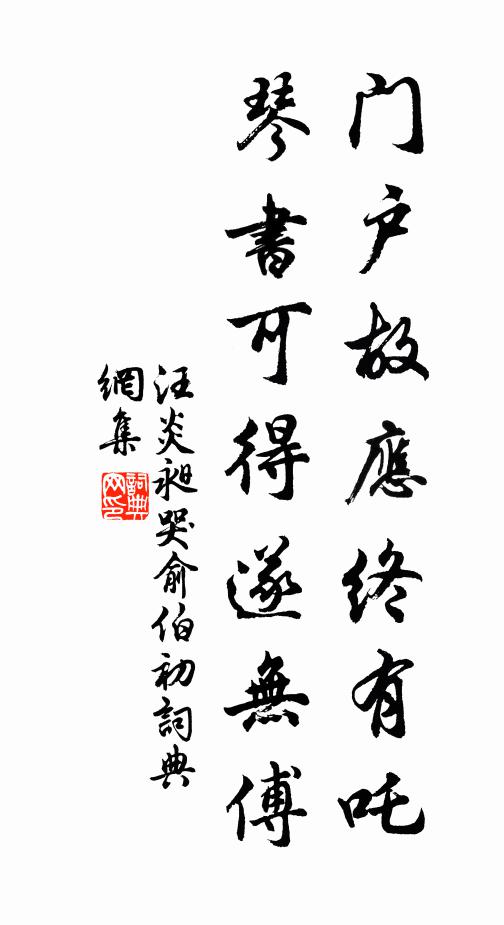 门户故應终有吒
琴書可得遂無傅
汪炎昶哭俞伯初詞典
網集
詞典
网印